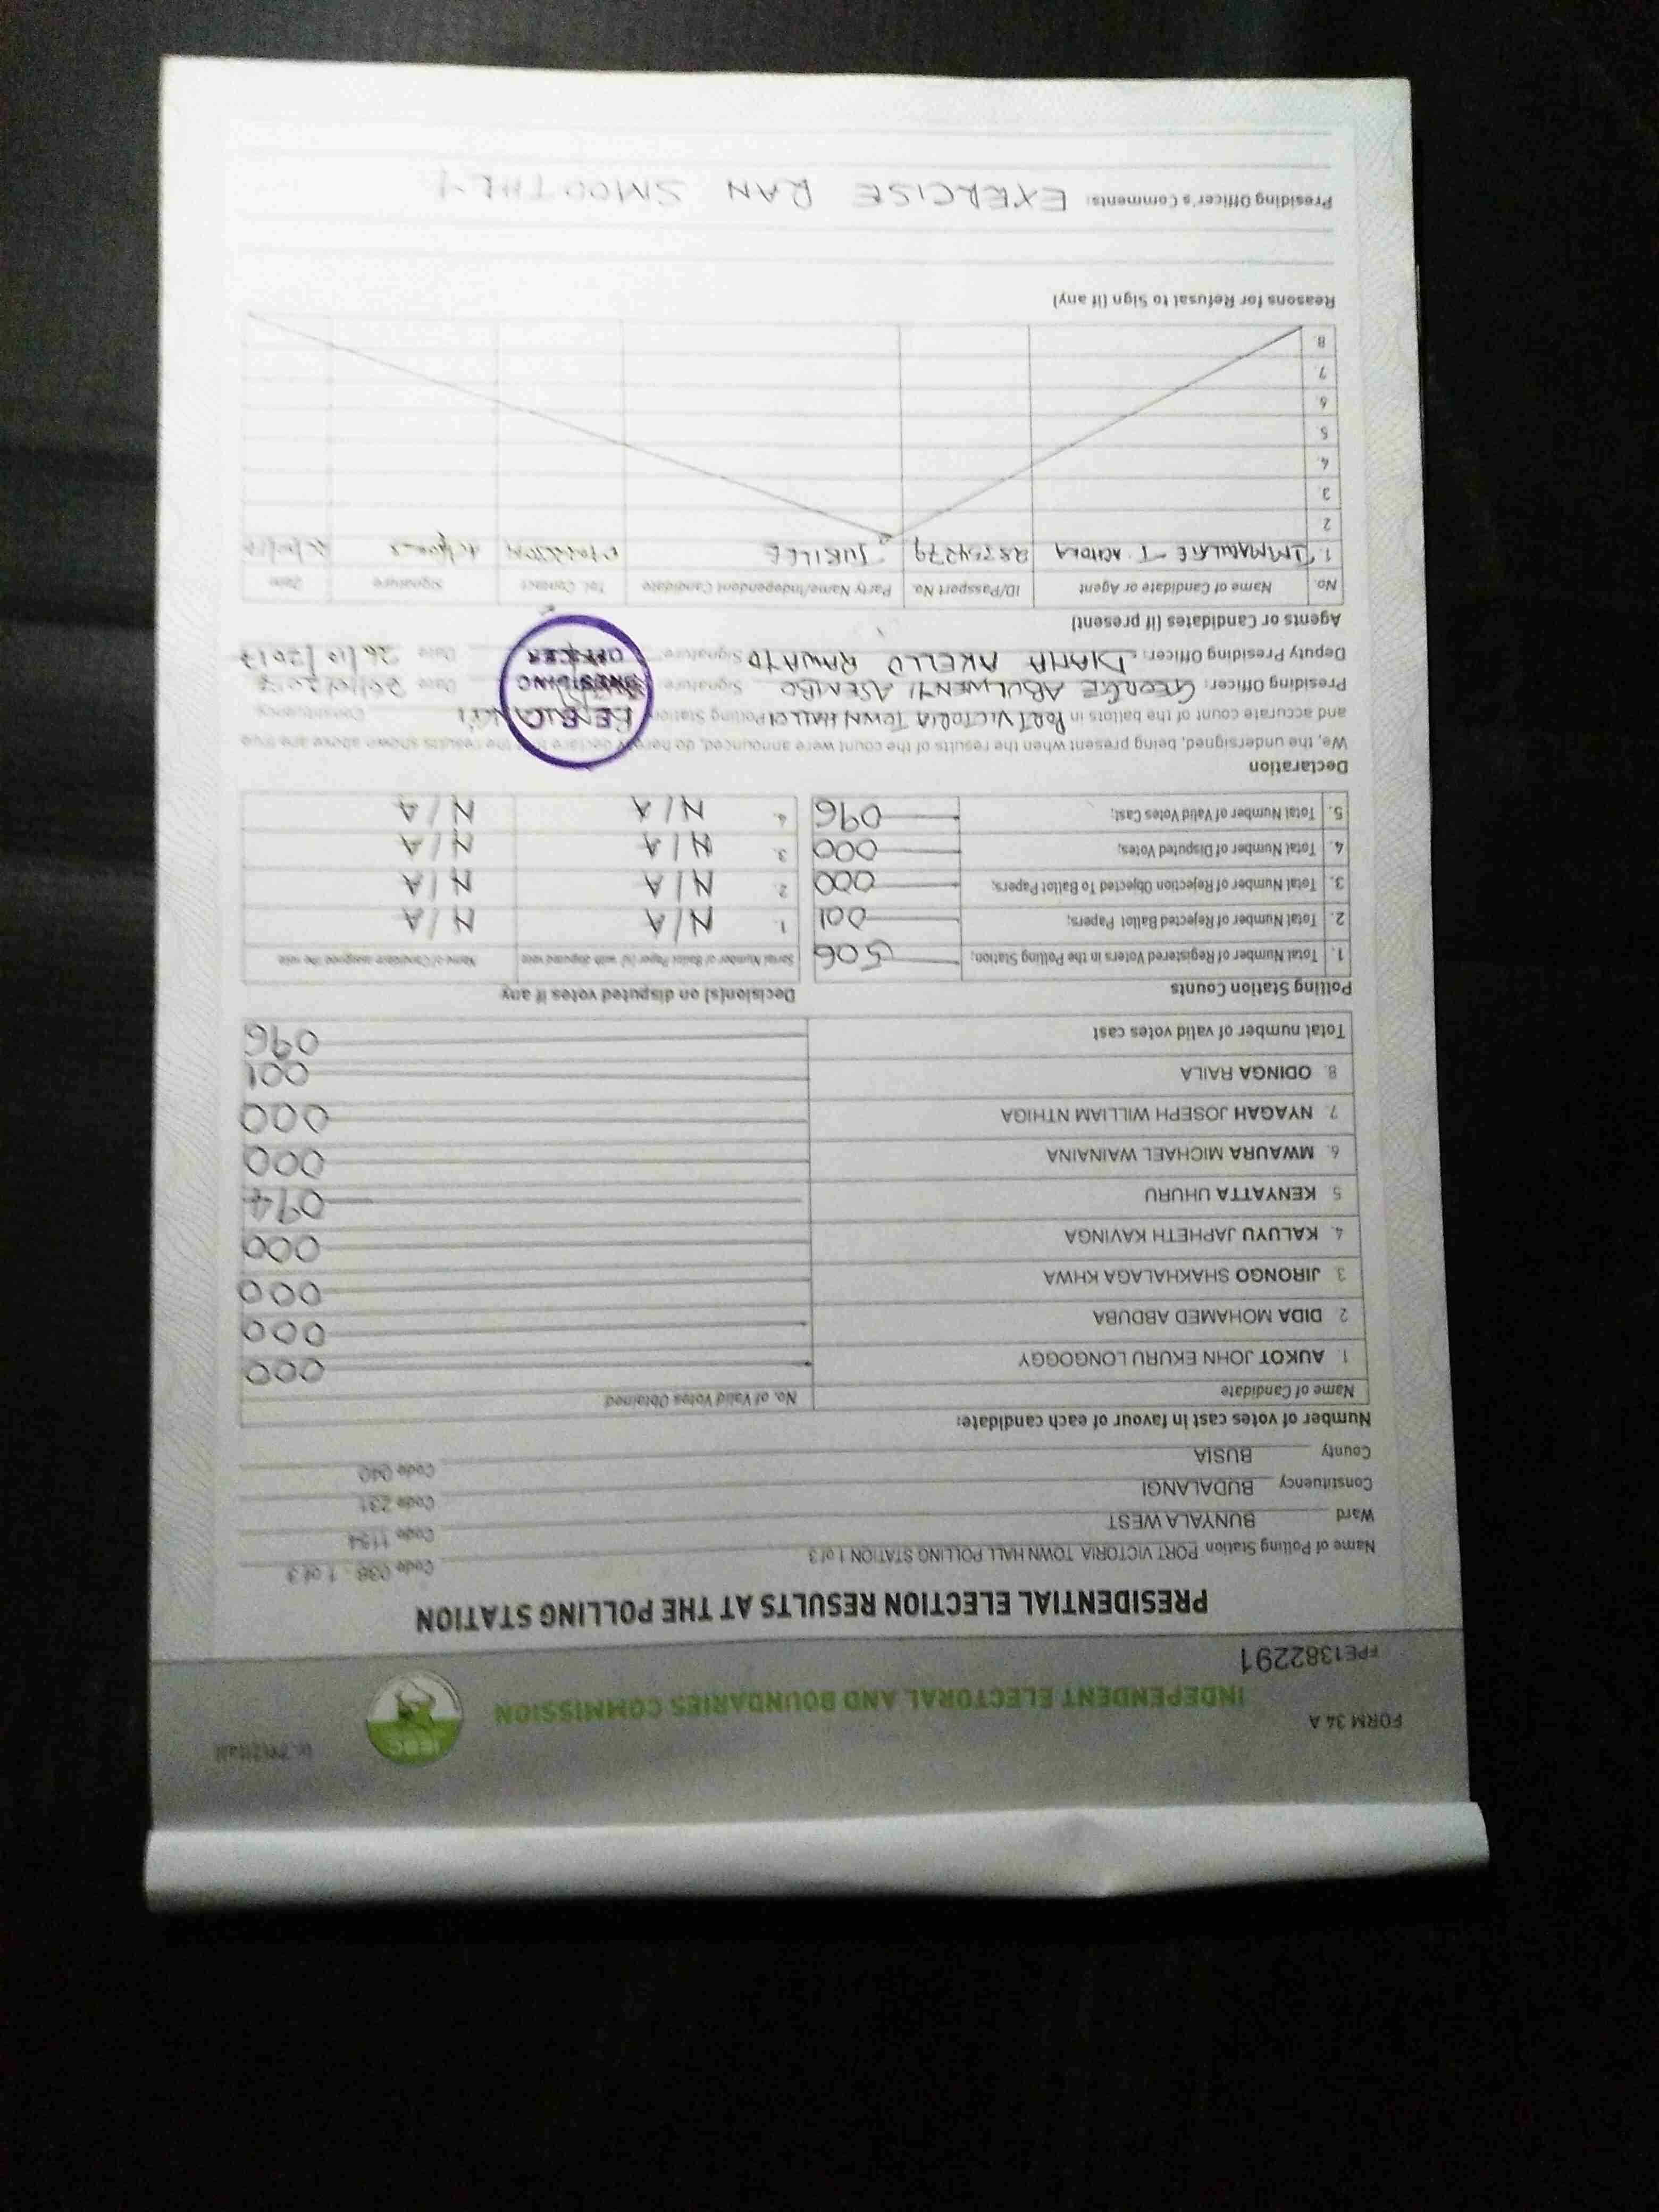 FORM 34 A
INDEPENDENT ELECTORAL AND BOUNDARIES COMMISSION
IEBC
FPE1382291
PRESIDENTIAL ELECTION RESULTS AT THE POLLING STATION
Name of Polling Station PORT VICTORIA TOWN HALL POLLING STATION 1 of 3 Code 038 - 1 of 3
Ward BUNYALA WEST Code 1154
Constituency BUDALANGI Code 231
County BUSIA Code 040
Number of votes cast in favour of each candidate:
Name of Candidate No. of Valid Votes Obtained
1. AUKOT JOHN EKURU LONGOGGY 000
2 DIDA MOHAMED ABDUBA 000
3 JIRONGO SHAKHALAGA KHWA 000
4. KALUYU JAPHETH KAVINGA 000
5 KENYATTA UHURU 094
6. MWAURA MICHAEL WAINAINA 000
7 NYAGAH JOSEPH WILLIAM NTHIGA 000
8. ODINGA RAILA 001
Total number of valid votes cast 096
Polling Station Counts Decision(s) on disputed votes if any
1. Total Number of Registered Voters in the Polling Station; 506 Serial Number of Ballot Paper (s) with disputed vote Name of Candidate assigned the vote
2. Total Number of Rejected Ballot Papers; 001 1. N/A N/A
3. Total Number of Rejection Objected To Ballot Papers; 000 2 N/A N/A
4. Total Number of Disputed Votes; 000 3. N/A N/A
5. Total Number of Valid Votes Cast; 096 4. N/A N/A
Declaration
We, the undersigned, being present when the results of the count were announced, do hereby declare that the results shown above are true
and accurate count of the ballots in PORT VICTORIA TOWN HALL Polling Station Constituency
Presiding Officer: GEORGE ASEMBO Signature Date
Deputy Presiding Officer: DIANA AKELLO Signature Date 26/10/2017
I.E.B.C
PRESIDING
OFFICER
Agents or Candidates (if present)
No Name of Candidate or Agent ID/Passport No. Party Name/Independent Candidate Tel. Contact Signature Date
1. 28754279 JUBILEE
2
3
4.
5
6
7.
8
Reasons for Refusal to Sign (if any)
Presiding Officer's Comments: EXERCISE RAN SMOOTHLY